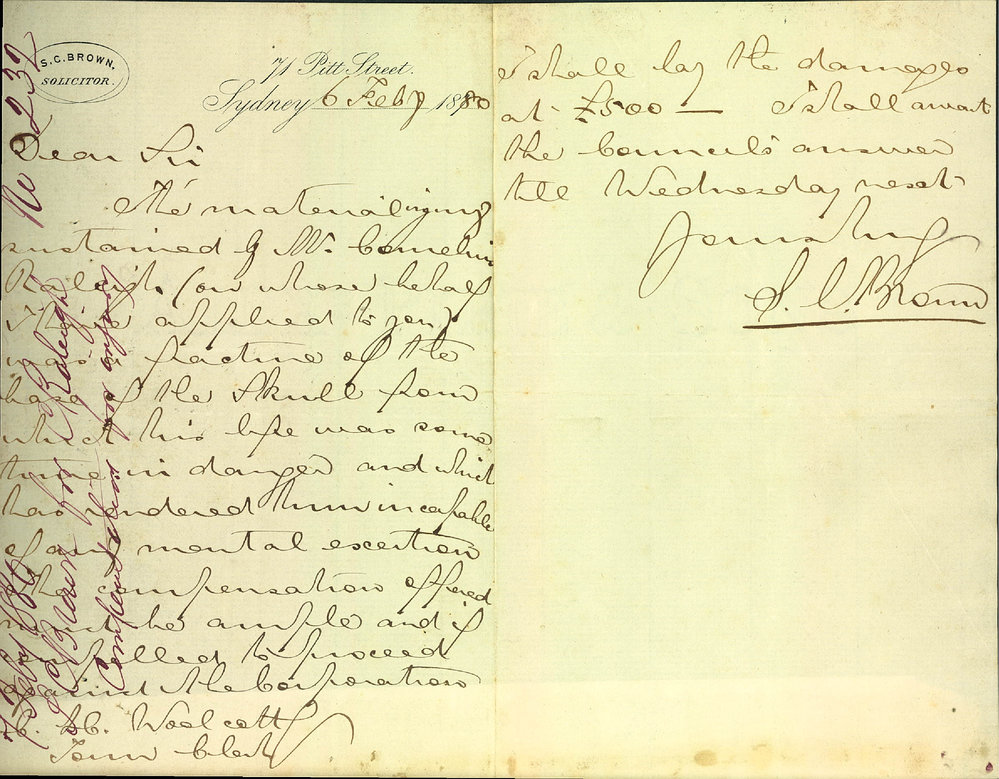 S.C. BROWN,
SOLICITOR.
71 Pitt Street.
Sydney 6 Feby 1880
Dear Sir
The material injury
sustained by Mr. Cornelius
Raleigh (on whose behalf
I have applied to you)
was a fracture of the
base of the Skull from
which his life was some
time in danger and which
has rendered him incapable
of any mental exertion
The compensation offered
must be ample and if
compelled to proceed
against the Corporation
C. H. Woolcott
Town Clerk
I shall lay the damages
at £500 — I shall await
the Council's answer
till Wednesday next
Yours truly
S. C. Brown
No 232
7 Feby 1880
S C Brown for Raleigh
Compensation for injuries